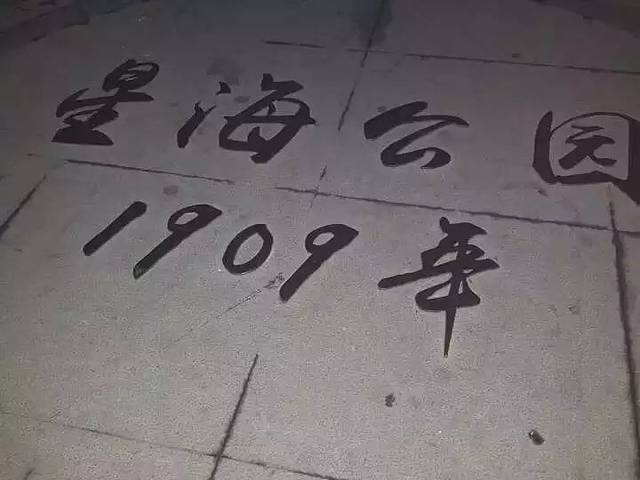 星海公园
1909年